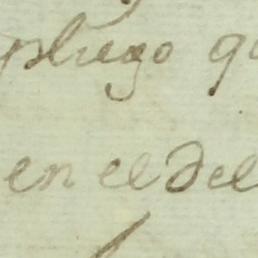 pliego q
en el del